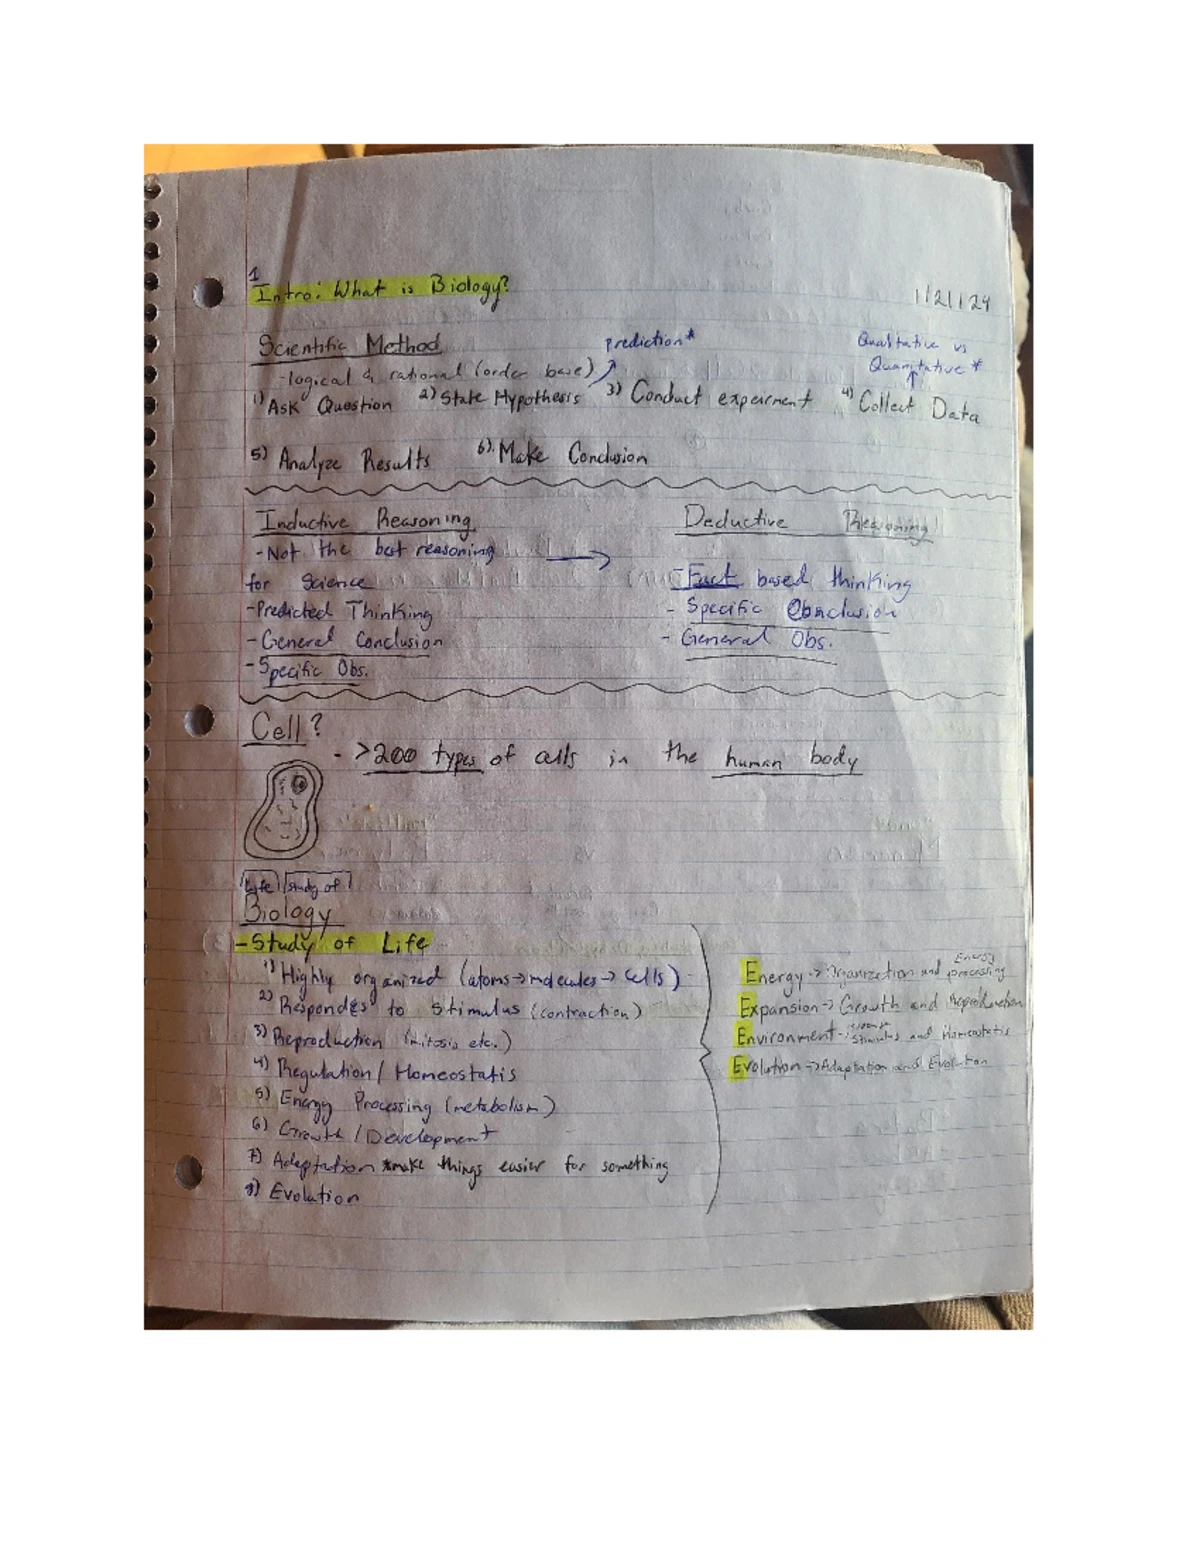 1
Intro: What is Biology?
1/21/24
Scientific Method
prediction*
Qualitative vs
Quantitative *
-logical & rational (order base)
1) Ask Question 2) State Hypothesis 3) Conduct expeirment 4) Collect Data
5) Analyze Results 6). Make Conclusion
Inductive Reasoning
-Not the best reasoning
for Science
-Predicted Thinking
-General Conclusion
-Specific Obs.
Deductive Reasoning
-Fact based thinking
- Specific Conclusion
- General Obs.
Cell?
- >200 types of cells in the human body
Life study of
Biology
-Study of Life
1) Highly organized (atoms→molecules→cells)
2) Respondes to Stimulus (contraction)
3) Reproduction (mitosis etc.)
4) Regulation/Homeostatis
5) Energy Processing (metabolism)
6) Growth/Development
7) Adaptation *make things easier for something
8) Evolution
Energy→Organization and Energy processing
Expansion→Growth and Reproduction
Environment→ Stimulus and Homeostatis
Evolution→Adaptation and Evolution